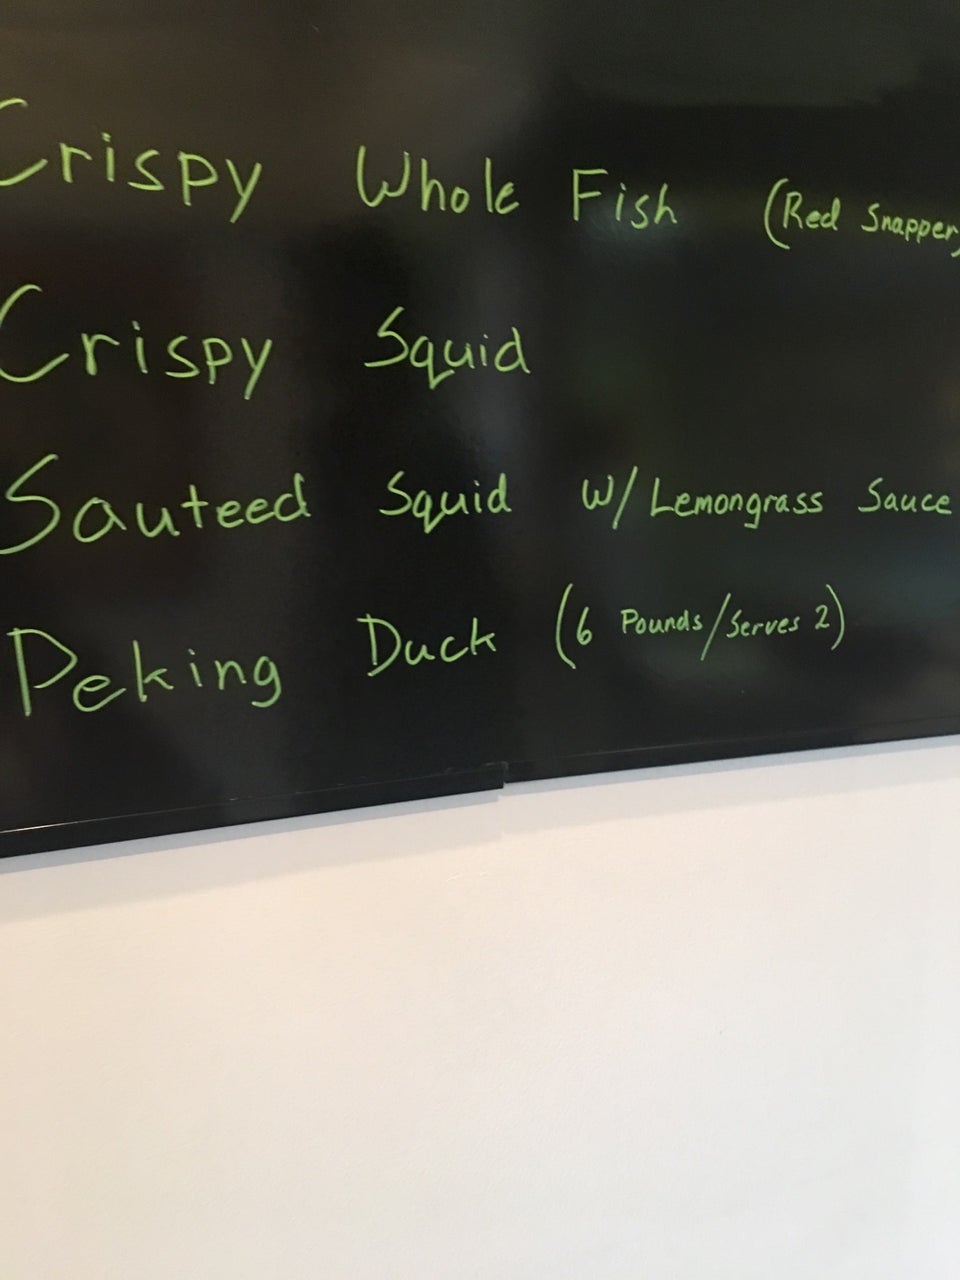 Crispy Whole Fish (Red Snapper)
Crispy Squid
Sauteed Squid w/ Lemongrass Sauce
Peking Duck (6 Pounds/Serves 2)